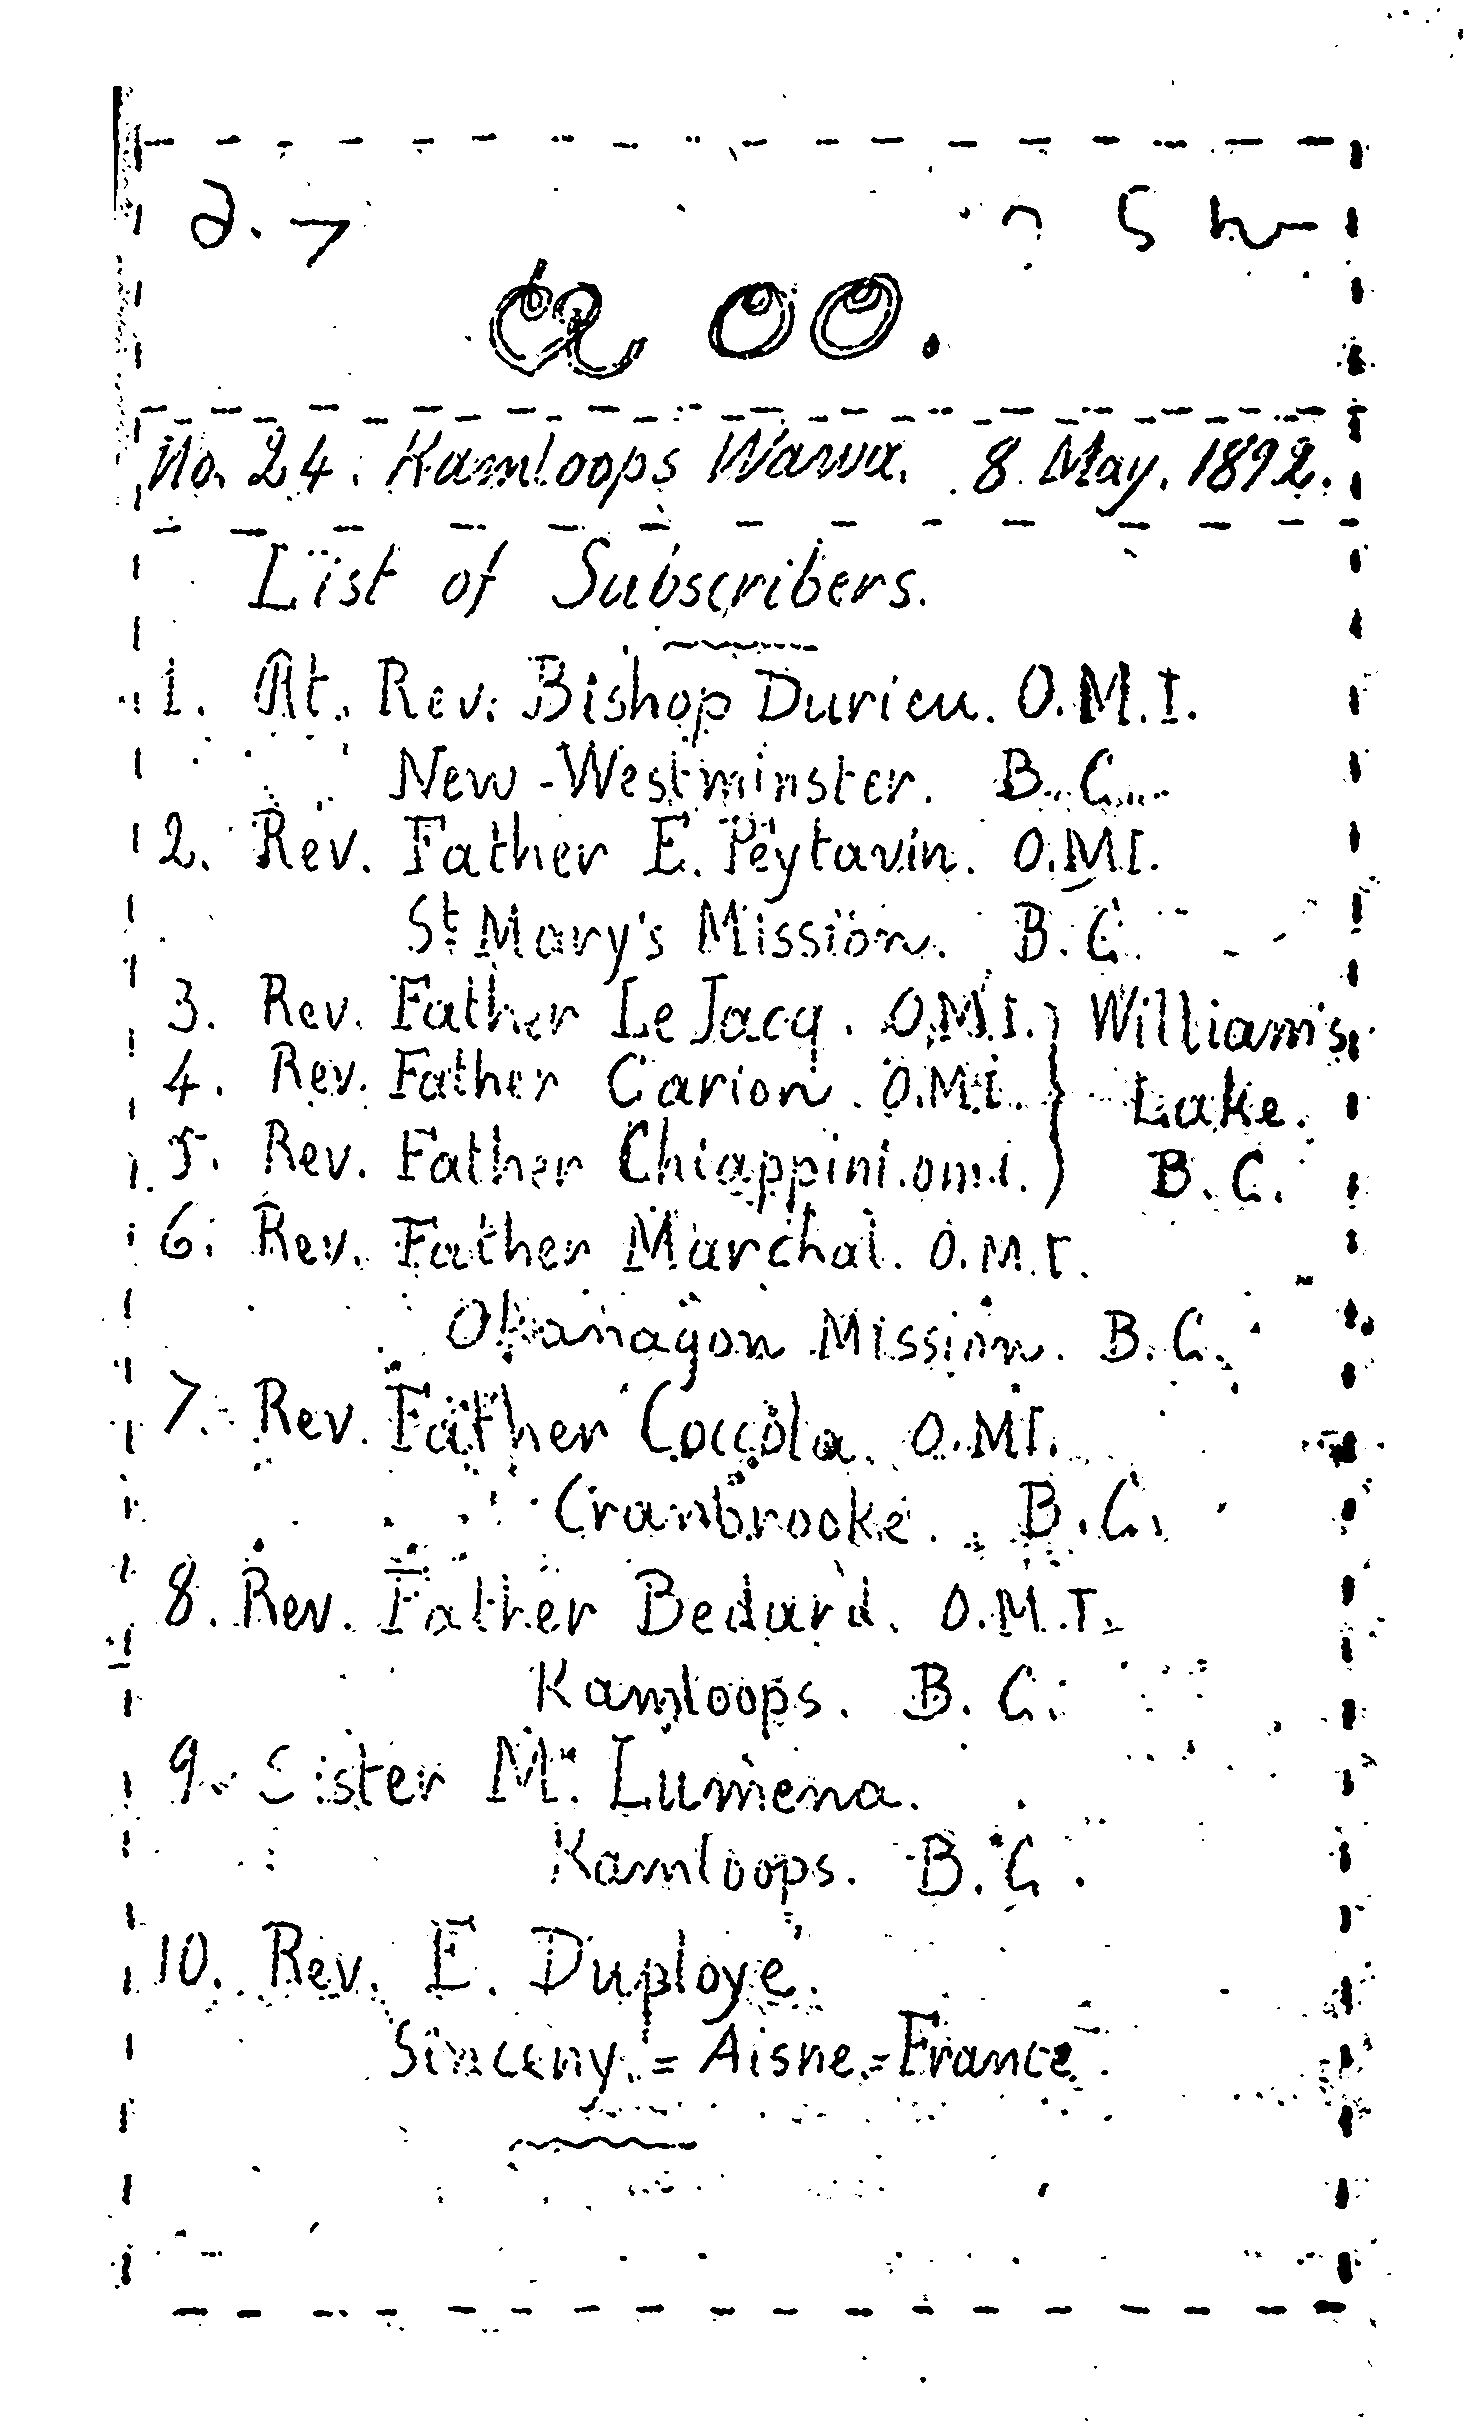 No. 24. Kamloops Wawa. 8 May. 1892.
List of Subscribers.
1. Rt. Rev. Bishop Durieu. O.M.I.
New-Westminster. B.C.
2. Rev. Father E. Peytavin. O.M.I.
St Mary's Mission. B.C.
3. Rev. Father Le Jacq. O.M.I. } William's
4. Rev. Father Carion. O.M.I. } Lake.
5. Rev. Father Chiappini. o.m.i. } B.C.
6. Rev. Father Marchal. O.M.I.
Okanagon Mission. B.C.
7. Rev. Father Coccola. O.M.I.
Cranbrooke. B.C.
8. Rev. Father Bedard. O.M.I.
Kamloops. B.C.
9. Sister M. Lumena.
Kamloops. B.C.
10. Rev. E. Duployé.
Sinceny. = Aisne. = France.